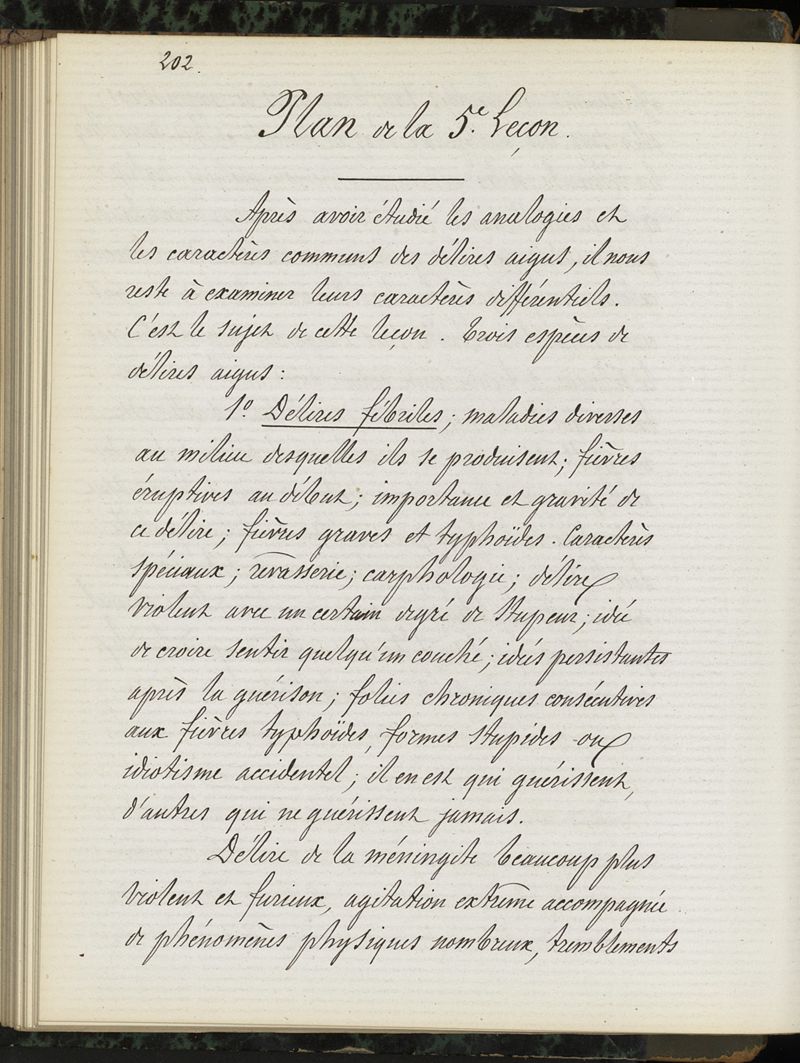 202.
Plan de la 5.e Leçon.
Après avoir étudié les analogies et
les caractères communs des délires aigus, il nous
reste à examiner leurs caractères différentiels.
C'est le sujet de cette leçon. Trois espèces de
délires aigus :
1.o Délires fébriles ; maladies diverses
au milieu desquelles ils se produisent ; fièvres
éruptives au début ; importance et gravité de
ce délire ; fièvres graves et typhoïdes. Caractères
spéciaux ; revasserie ; carphologie ; délire
violent avec un certain degré de stupeur ; idée
de croire sentir quelqu'un couché ; idées persistantes
après la guérison ; folies chroniques consécutives
aux fièvres typhoïdes, formes stupides ou
idiotisme accidentel ; il en est qui guérissent,
d'autres qui ne guérissent jamais.
Délire de la méningite beaucoup plus
violent et furieux, agitation extrême accompagnée
de phénomènes physiques nombreux, tremblements